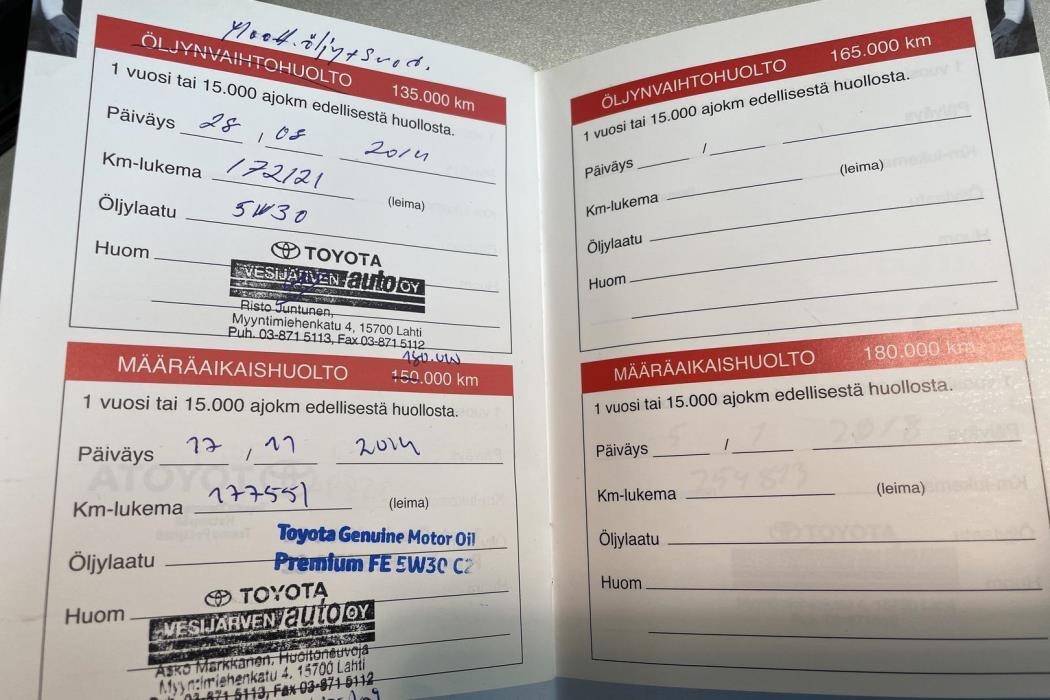 Moott.öljy+Suod.
ÖLJYNVAIHTOHUOLTO 135.000 km
1 vuosi tai 15.000 ajokm edellisestä huollosta.
Päiväys 28 , 08 2014
Km-lukema 172121
(leima)
Öljylaatu 5W30
Huom
TOYOTA
VESIJÄRVEN auto OY
Risto Juntunen,
Myyntimiehenkatu 4, 15700 Lahti
Puh. 03-871 5113, Fax 03-871 5112
MÄÄRÄAIKAISHUOLTO 150.000 km
1 vuosi tai 15.000 ajokm edellisestä huollosta.
Päiväys 17 , 11 2014
Km-lukema 177551
(leima)
Öljylaatu Toyota Genuine Motor Oil
Premium FE 5W30 C2
Huom
TOYOTA
VESIJÄRVEN auto OY
Asko Markkanen, Huoltoneuvoja
Myyntimiehenkatu 4, 15700 Lahti
Puh. 03-871 5113, Fax 03-871 5112
ÖLJYNVAIHTOHUOLTO 165.000 km
1 vuosi tai 15.000 ajokm edellisestä huollosta.
Päiväys /
Km-lukema (leima)
Öljylaatu
Huom
MÄÄRÄAIKAISHUOLTO 180.000 km
1 vuosi tai 15.000 ajokm edellisestä huollosta.
Päiväys /
Km-lukema (leima)
Öljylaatu
Huom